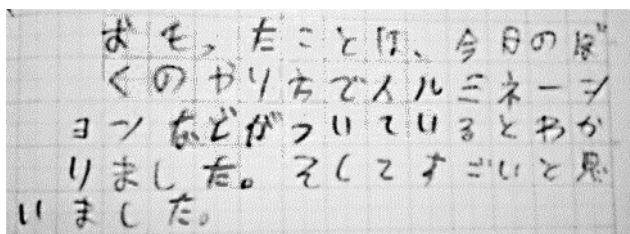 おもったことは、今日のぼ
くのやり方でイルミネーシ
ョンなどがついているとわか
りました。そしてすごいと思
いました。